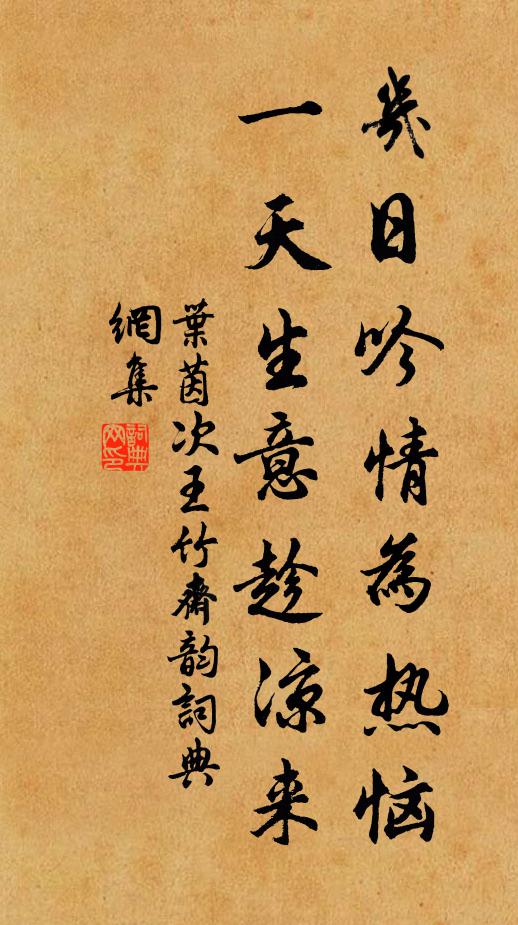 幾日吟情為热恼
一天生意趁凉来
葉茵次王竹齋韵詞典
網集
詞典
网印